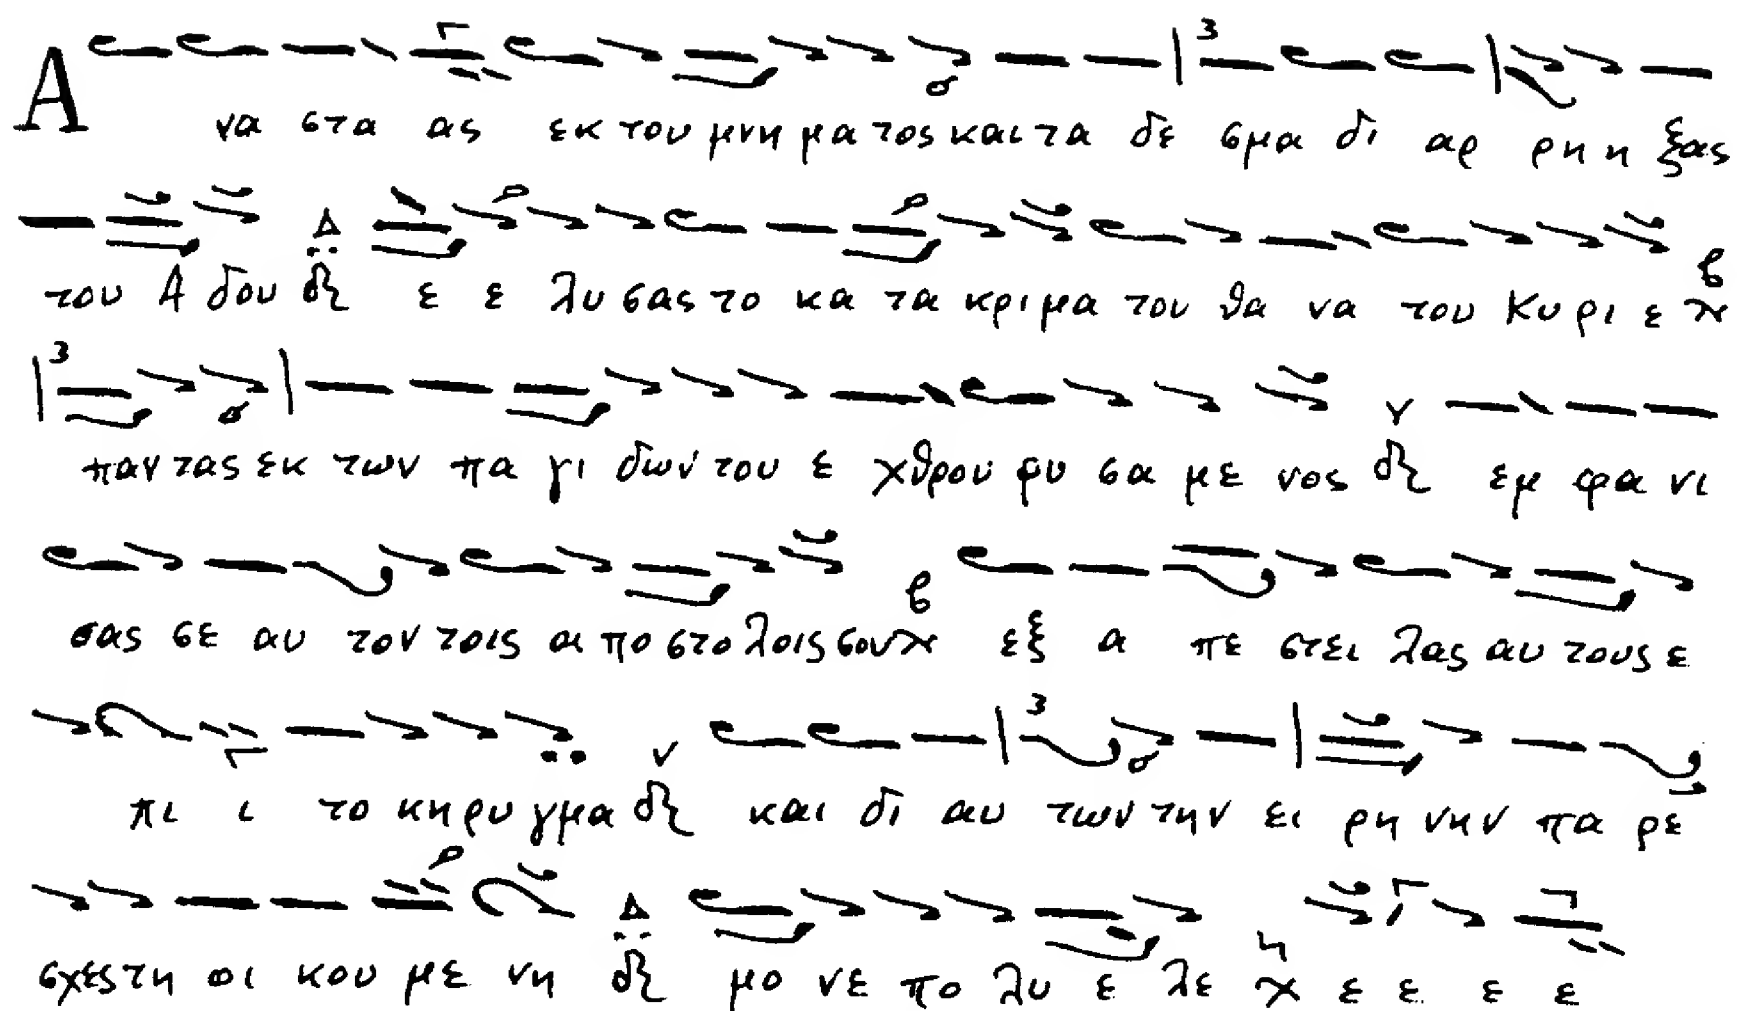 Α να στα ας εκ του μνη μα τος και τα δε σμα δι αρ ρη η ξας
του Α δου ε ε λυ σας το κα τα κρι μα του θα να του Κυ ρι ε
παν τας εκ των πα γι δων του ε χθρου ρυ σα με νος εμ φα νι
σας σε αυ τον τοις α πο στο λοις σου εξ α πε στει λας αυ τους ε
πι ι το κη ρυ γμα και δι αυ των την ει ρη νην πα ρε
σχες τη οι κου με νη μο νε πο λυ ε λε ε ε ε ε